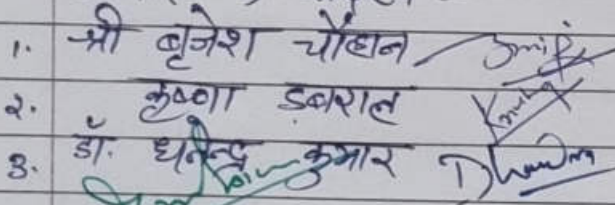 1. श्री बृजेश चौहान
2. कृष्णा डबराल
3. डॉ. धनेन्द्र कुमार